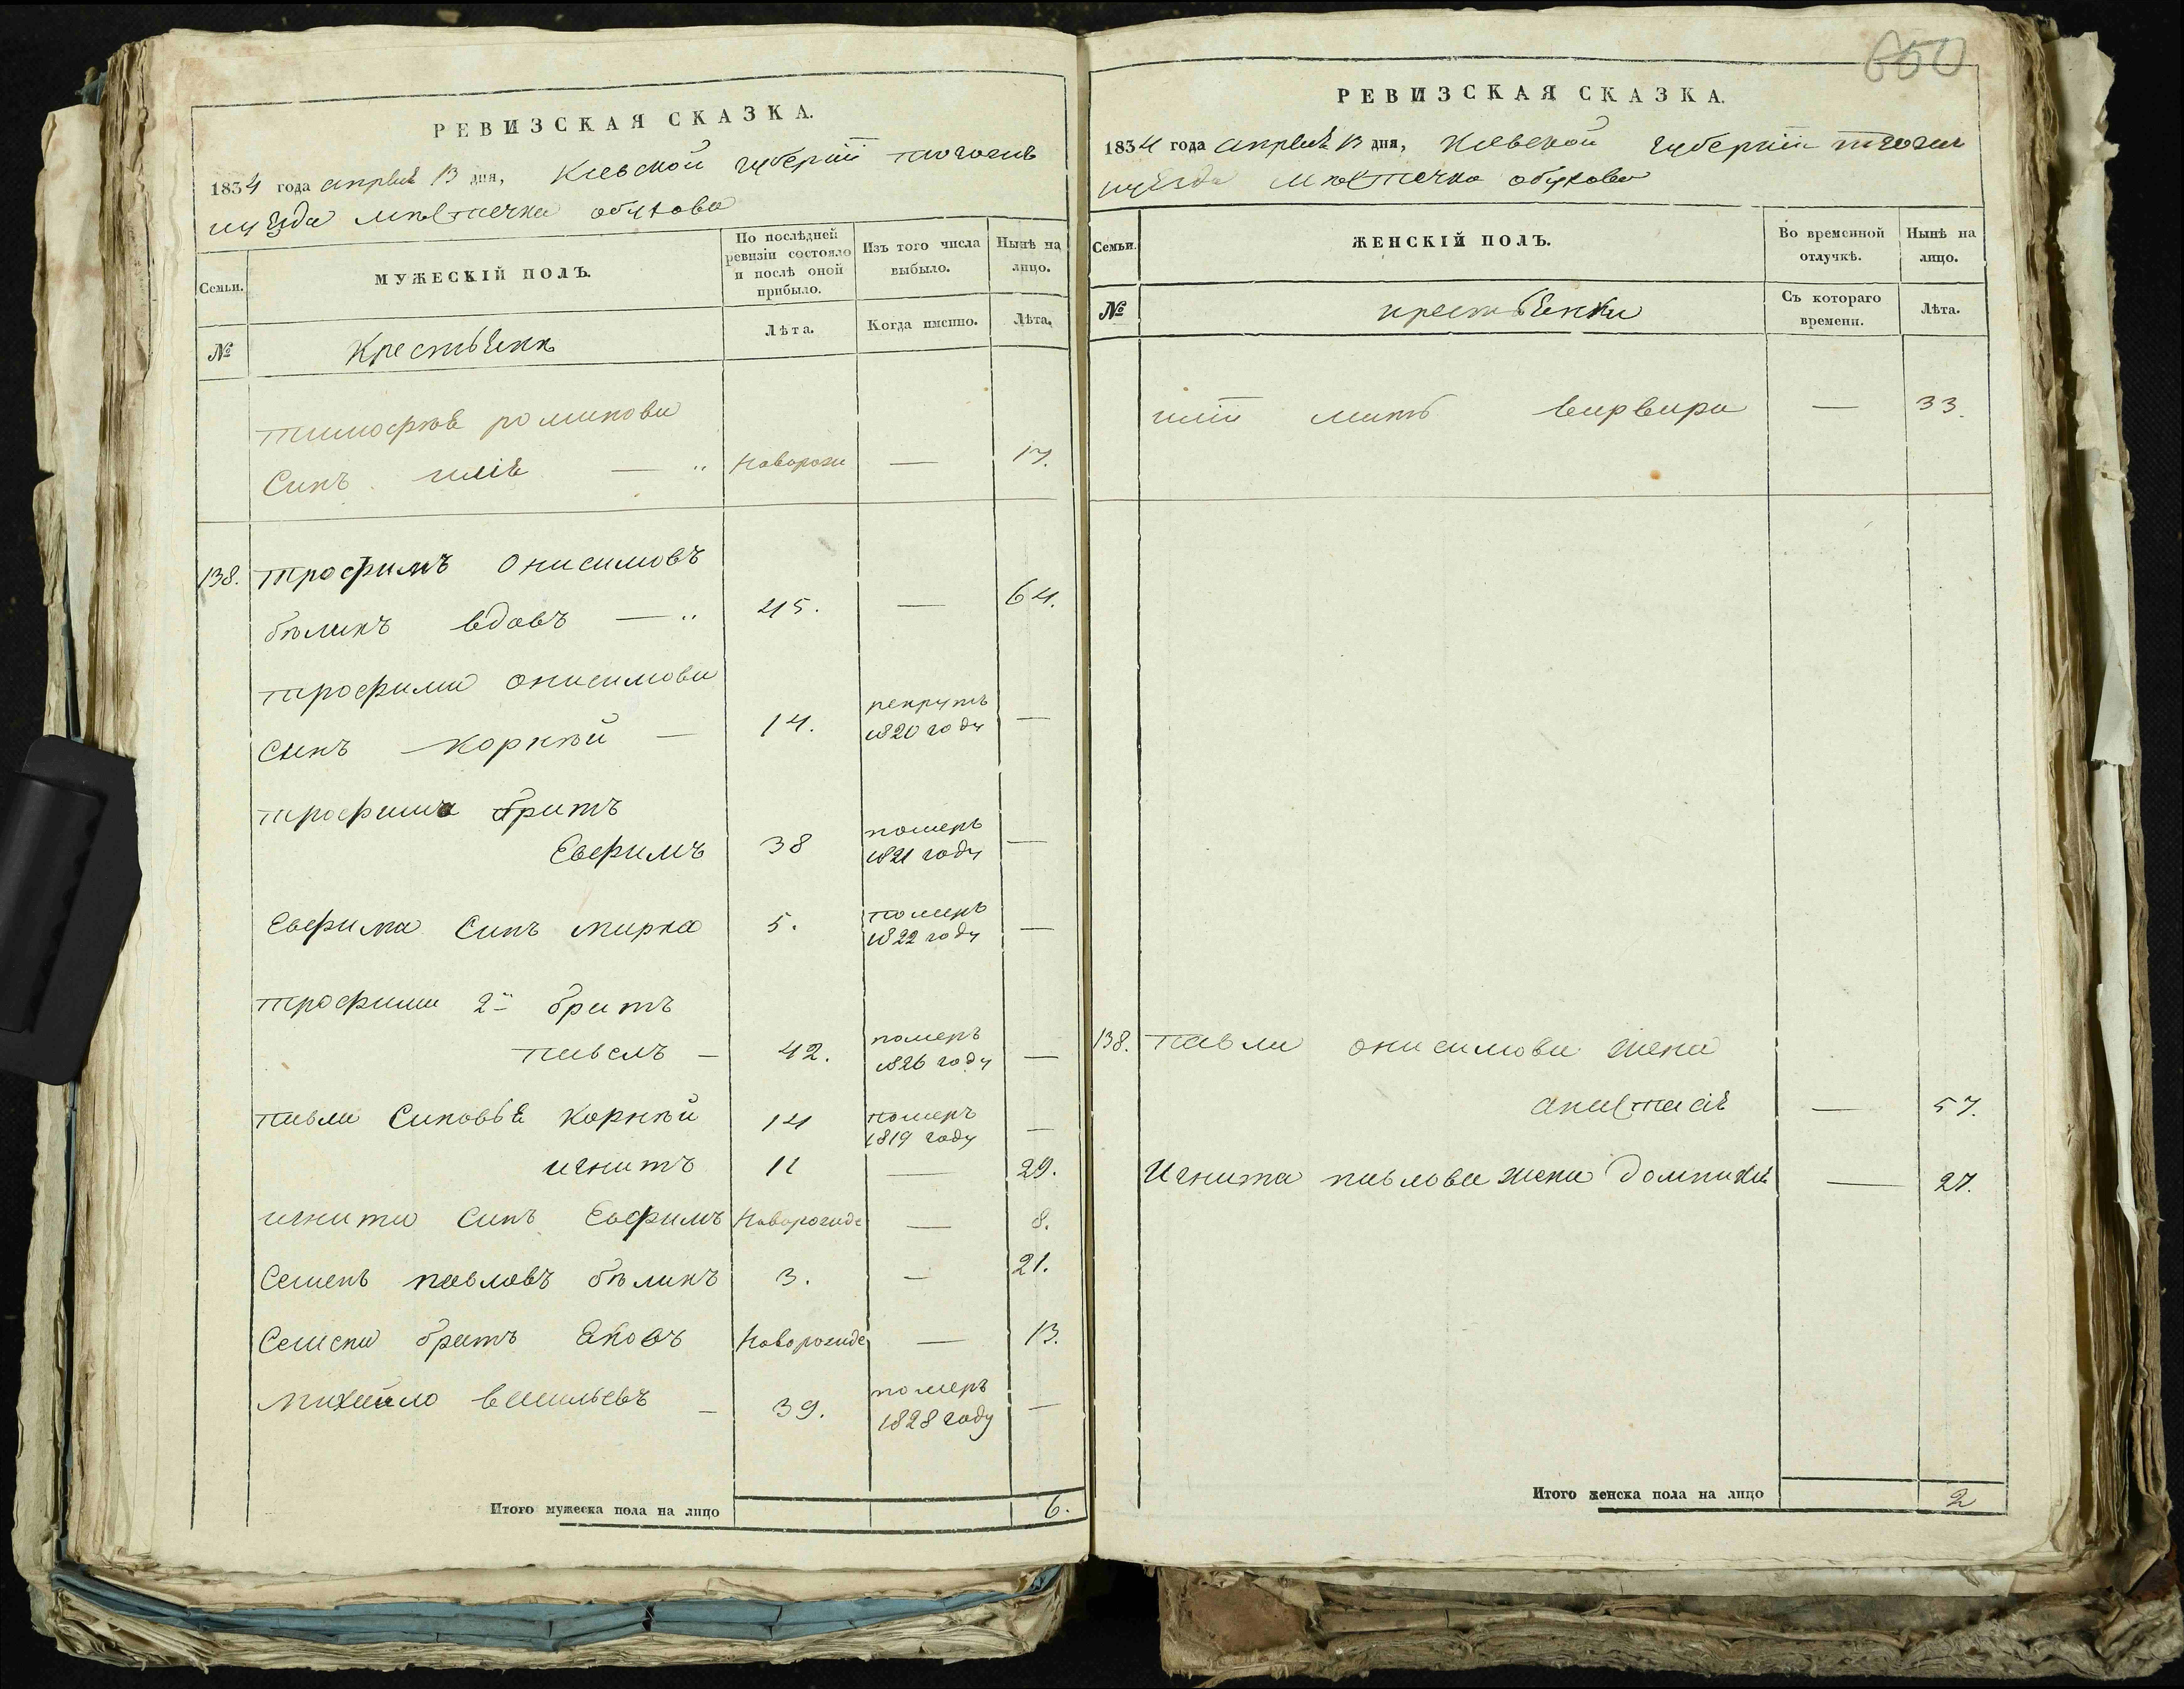 РЕВИЗСКАЯ СКАЗКА.
1834 года апреля 13 дня, Киевской губернии
уезда местечка обухова
Семьи.
МУЖЕСКІЙ ПОЛЪ.
По послѣдней ревизіи состояло и послѣ оной прибыло.
Изъ того числа выбыло.
Нынѣ на лицо.
№
Крестьяня
Лѣта.
Когда именно.
Лѣта.
тимофея романова
Синъ илія — новорож — 17.
138. трофимъ онисимовъ
бѣликъ вдовъ — 45. — 64.
трофима онисимова
рекрутъ
сынъ корнѣй — 14. 1820 году —
трофима братъ
померъ
Евфимъ 38 1821 году —
Евфима Синъ марко 5. померъ
1822 году —
трофима 2й братъ
померъ
павелъ — 42. 1826 году —
павла Синовья корнѣй 14 померъ
1819 году —
игнатъ 11 — 29.
игната Синъ Евфимъ Новорожде — 8.
Семенъ павловъ бѣликъ 3. — 21.
Семена братъ Яковъ Новорожде — 13.
михайло васильевъ — 39. померъ
1828 году —
Итого мужеска пола на лицо 6.
650
РЕВИЗСКАЯ СКАЗКА.
1834 года апреля 13 дня, Киевской губернии
уезда местечка обухова
Семьи.
ЖЕНСКІЙ ПОЛЪ.
Во временной отлучкѣ.
Нынѣ на лицо.
№
крестьянки
Съ котораго времени.
Лѣта.
иліи мать варвара — 33.
138. павла онисимова жена
анастасія — 57.
Игната павлова жена домникія — 27.
Итого женска пола на лицо 2